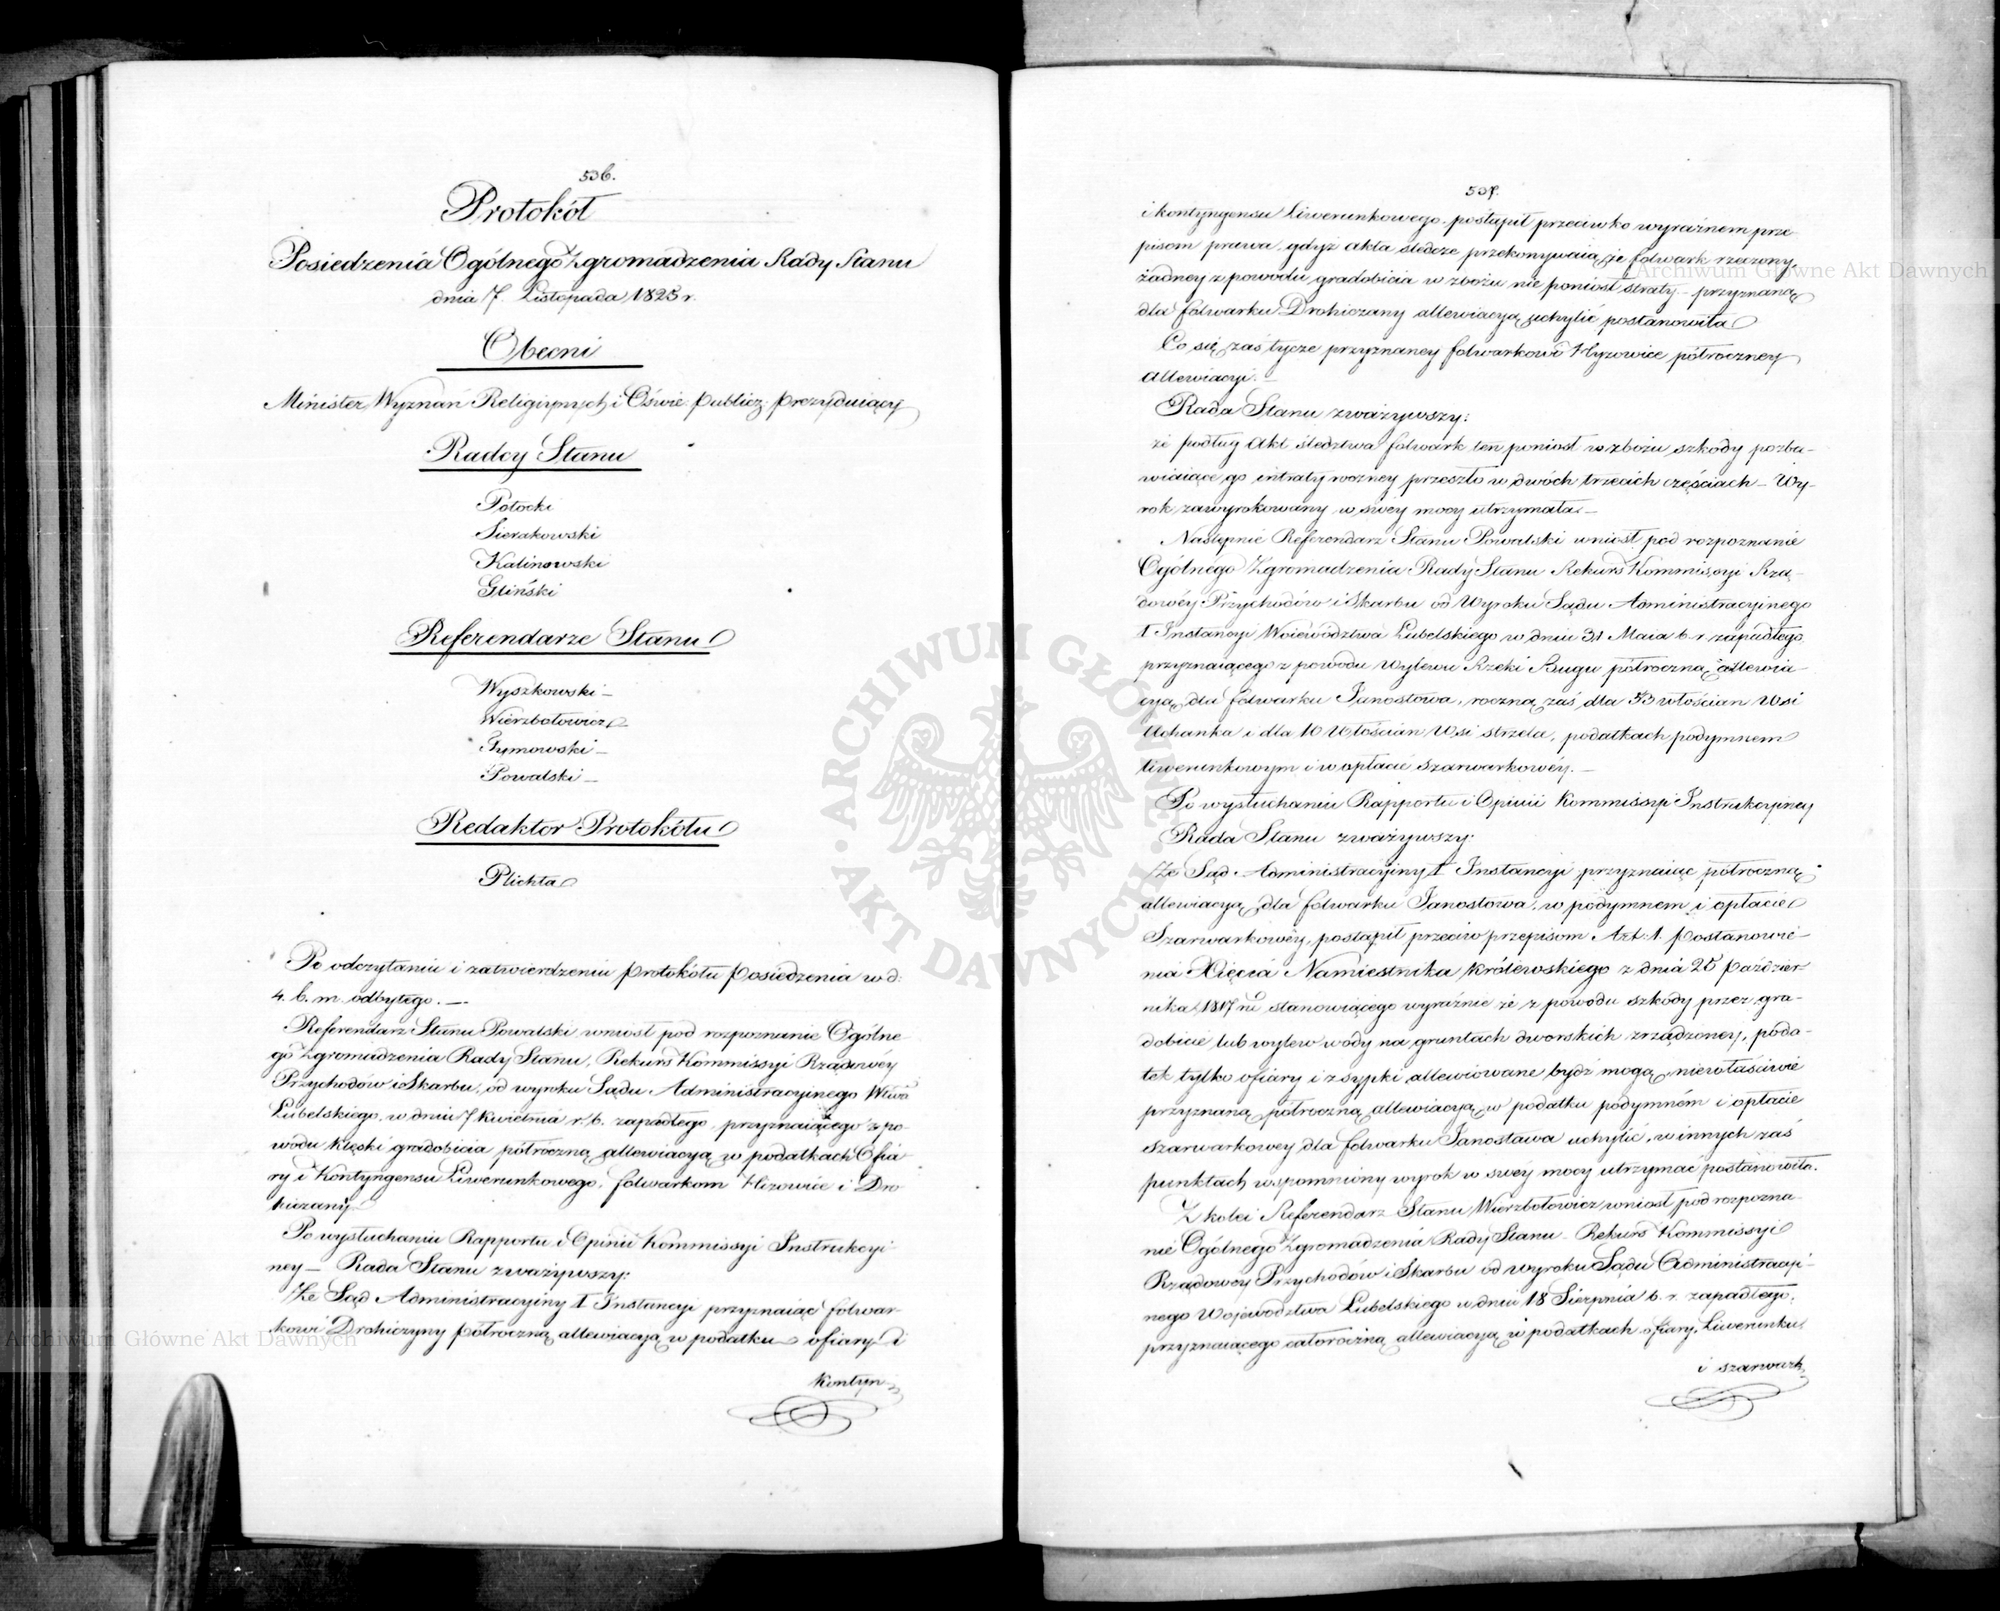 536.
Protokół
Posiedzenia Ogólnego Zgromadzenia Rady Stanu
dnia 7. Listopada 1823 r.
Obecni
Minister Wyznań Religiynych i Oświe: publicz: prezyduiący
Radcy Stanu
Potocki
Sierakowski
Kalinowski
Gliński
Referendarze Stanu
Wyszkowski –
Wierzbołowicz
Tymowski –
Powalski –
Redaktor Protokółu
Plichta
Po odczytaniu i zatwierdzeniu protokółu posiedzenia w d:
4. b. m. odbytego. —
Referendarz Stanu Powalski wniosł pod rozpoznanie Ogólne-
go Zgromadzenia Rady Stanu, Rekurs Kommissyi Rządowéy
Przychodów i Skarbu, od wyroku Sądu Administracyinego Wwa
Lubelskiego, w dniu 7 kwietnia r. b. zapadłego, przyznaiącego z po-
wodu klęski gradobicia półroczną allewiacyą w podatkach Ofia-
ry i Kontyngensu Liwerunkowego, folwarkom Hizowice i Dro-
hiczany –
Po wysłuchaniu Rapportu i Opinii Kommissyi Instrukcyi-
ney – Rada Stanu zważywszy:
Że Sąd Administracyiny I Instancyi przyznaiąc folwar-
kowi Drohiczyny półroczną allewiacyą w podatku ofiary i
kontyn-
537.
i kontyngensu liwerunkowego, postąpił przeciwko wyraźnem prze-
pisom prawa, gdyż akta śledcze przekonywaią, że folwark rzeczony,
żadney z powodu gradobicia w zbożu nie poniosł straty – przyznaną
dla folwarku Drohiczany allewiacyą uchylić postanowiła
Co się zaś tycze przyznaney folwarkowi Hyzowice półroczney
allewiacyi. –
Rada Stanu zważywszy:
że podług akt śledztwa folwark ten poniosł w zbożu szkody pozba-
wiaiące go intraty roczney przeszło w dwóch trzecich częściach – Wy-
rok zawyrokowany w swey mocy utrzymała. –
Następnie Referendarz Stanu Powalski wniosł pod rozpoznanie
Ogólnego Zgromadzenia Rady Stanu Rekurs Kommissyi Rzą-
dowéy Przychodów i Skarbu od Wyroku Sądu Administracyinego
I Instancyi Woiewództwa Lubelskiego w dniu 31 Maia b. r. zapadłego
przyznaiącego z powodu wylewu Rzeki Bugu półroczną allewia-
cyą dla folwarku Janostowa, roczną zaś dla 53 włościan Wsi
Uchanka i dla 10 Włościan Wsi Strzela, podatkach podymnem
liwerunkowym i w opłacie szarwarkowéy. –
Po wysłuchaniu Rapportu i Opinii Kommissyi Instrukcyiney
Rada Stanu zważywszy:
Że Sąd Administracyiny I Instancyi przyznaiąc półroczną
allewiacyą dla folwarku Janostowa, w podymnem i opłacie
Szarwarkowéy, postąpił przeciw przepisom Art: 1. postanowie-
nia Xięcia Namiestnika Królewskiego z dnia 25 Paździer-
nika 1817 ru stanowiącego wyraźnie że z powodu szkody przez gra-
dobicie lub wylew wody na gruntach dworskich zrządzoney, poda-
tek tylko ofiary i zsypki allewiowane bydź mogą, niewłaściwie
przyznaną półroczną allewiacyą w podatku podymném i opłacie
szarwarkowey dla folwarku Janostawa uchylić, w innych zaś
punktach wspomniony wyrok w swéy mocy utrzymać postanowiła.
Z kolei Referendarz Stanu Wierzbołowicz wniosł pod rozpozna-
nie Ogólnego Zgromadzenia Rady Stanu – Rekurs Kommissyi
Rządowéy Przychodów i Skarbu od wyroku Sądu Administracyi-
nego Wojewodztwa Lubelskiego w dniu 18 Sierpnia b. r. zapadłego,
przyznaiącego całoroczną allewiacyą w podatkach ofiary, Liwerunku
i szarwark-
Archiwum Główne Akt Dawnych
Archiwum Główne Akt Dawnych
ARCHIWUM GŁÓWNE AKT DAWNYCH